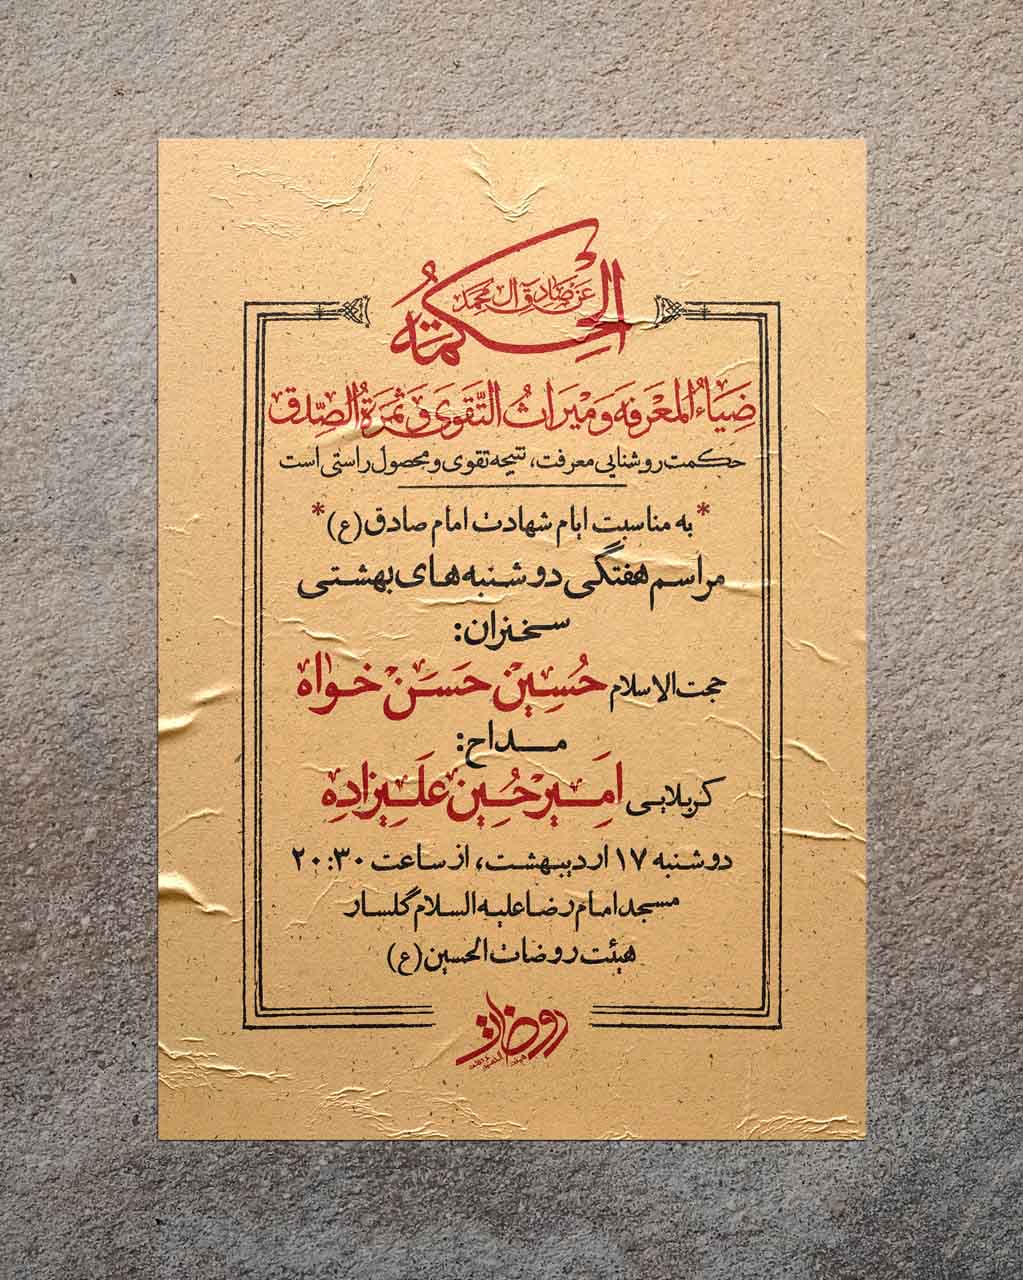 عن صادق آل محمد
الحکمة
ضیاءُ المعرفه و میراثُ التّقوی وَ ثمرَةُ الصِّدق
حکمت روشنایی معرفت، نتیجه تقوی و محصول راستی است
* به مناسبت ایام شهادت امام صادق (ع) *
مراسم هفتگی دوشنبه های بهشتی
سخنران:
حجت الاسلام حُسِین حَسَن خواه
مداح:
کربلایی اَمیرحُسِین عَلیزاده
دوشنبه ۱۷ اردیبهشت، از ساعت ۲۰:۳۰
مسجد امام رضا علیه السلام گلسار
هیئت روضات الحسین (ع)
روضات